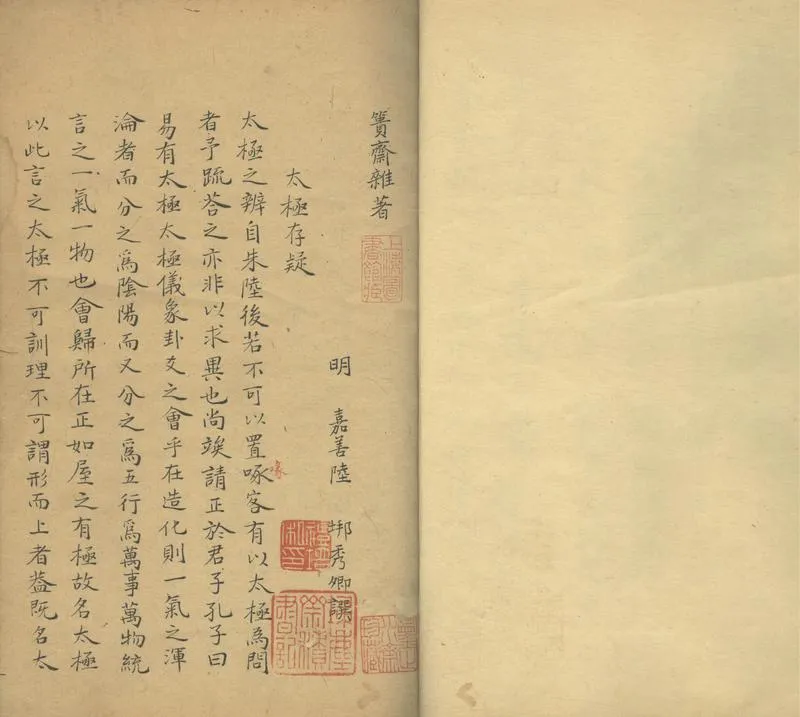 簣齋雜著
明 嘉善陸 垹秀卿譔
太極存疑
太極之辨自朱陸後若不可以置啄客有以太極為問
喙
者予䟽荅之亦非以求異也尚竢請正於君子孔子曰
易有太極太極儀象卦爻之會乎在造化則一氣之渾
淪者而分之爲陰陽而又分之爲五行爲萬事萬物統
言之一氣一物也會歸所在正如屋之有極故名太極
以此言之太極不可訓理不可謂形而上者葢既名太
上海圖
書館藏